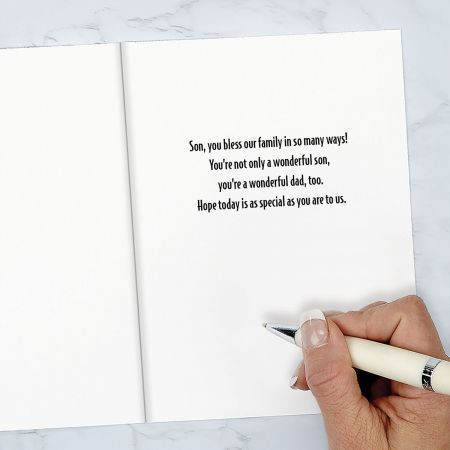 Son, you bless our family in so many ways!
You're not only a wonderful son,
you're a wonderful dad, too.
Hope today is as special as you are to us.